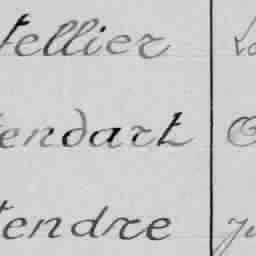 tellier
endart
tendre